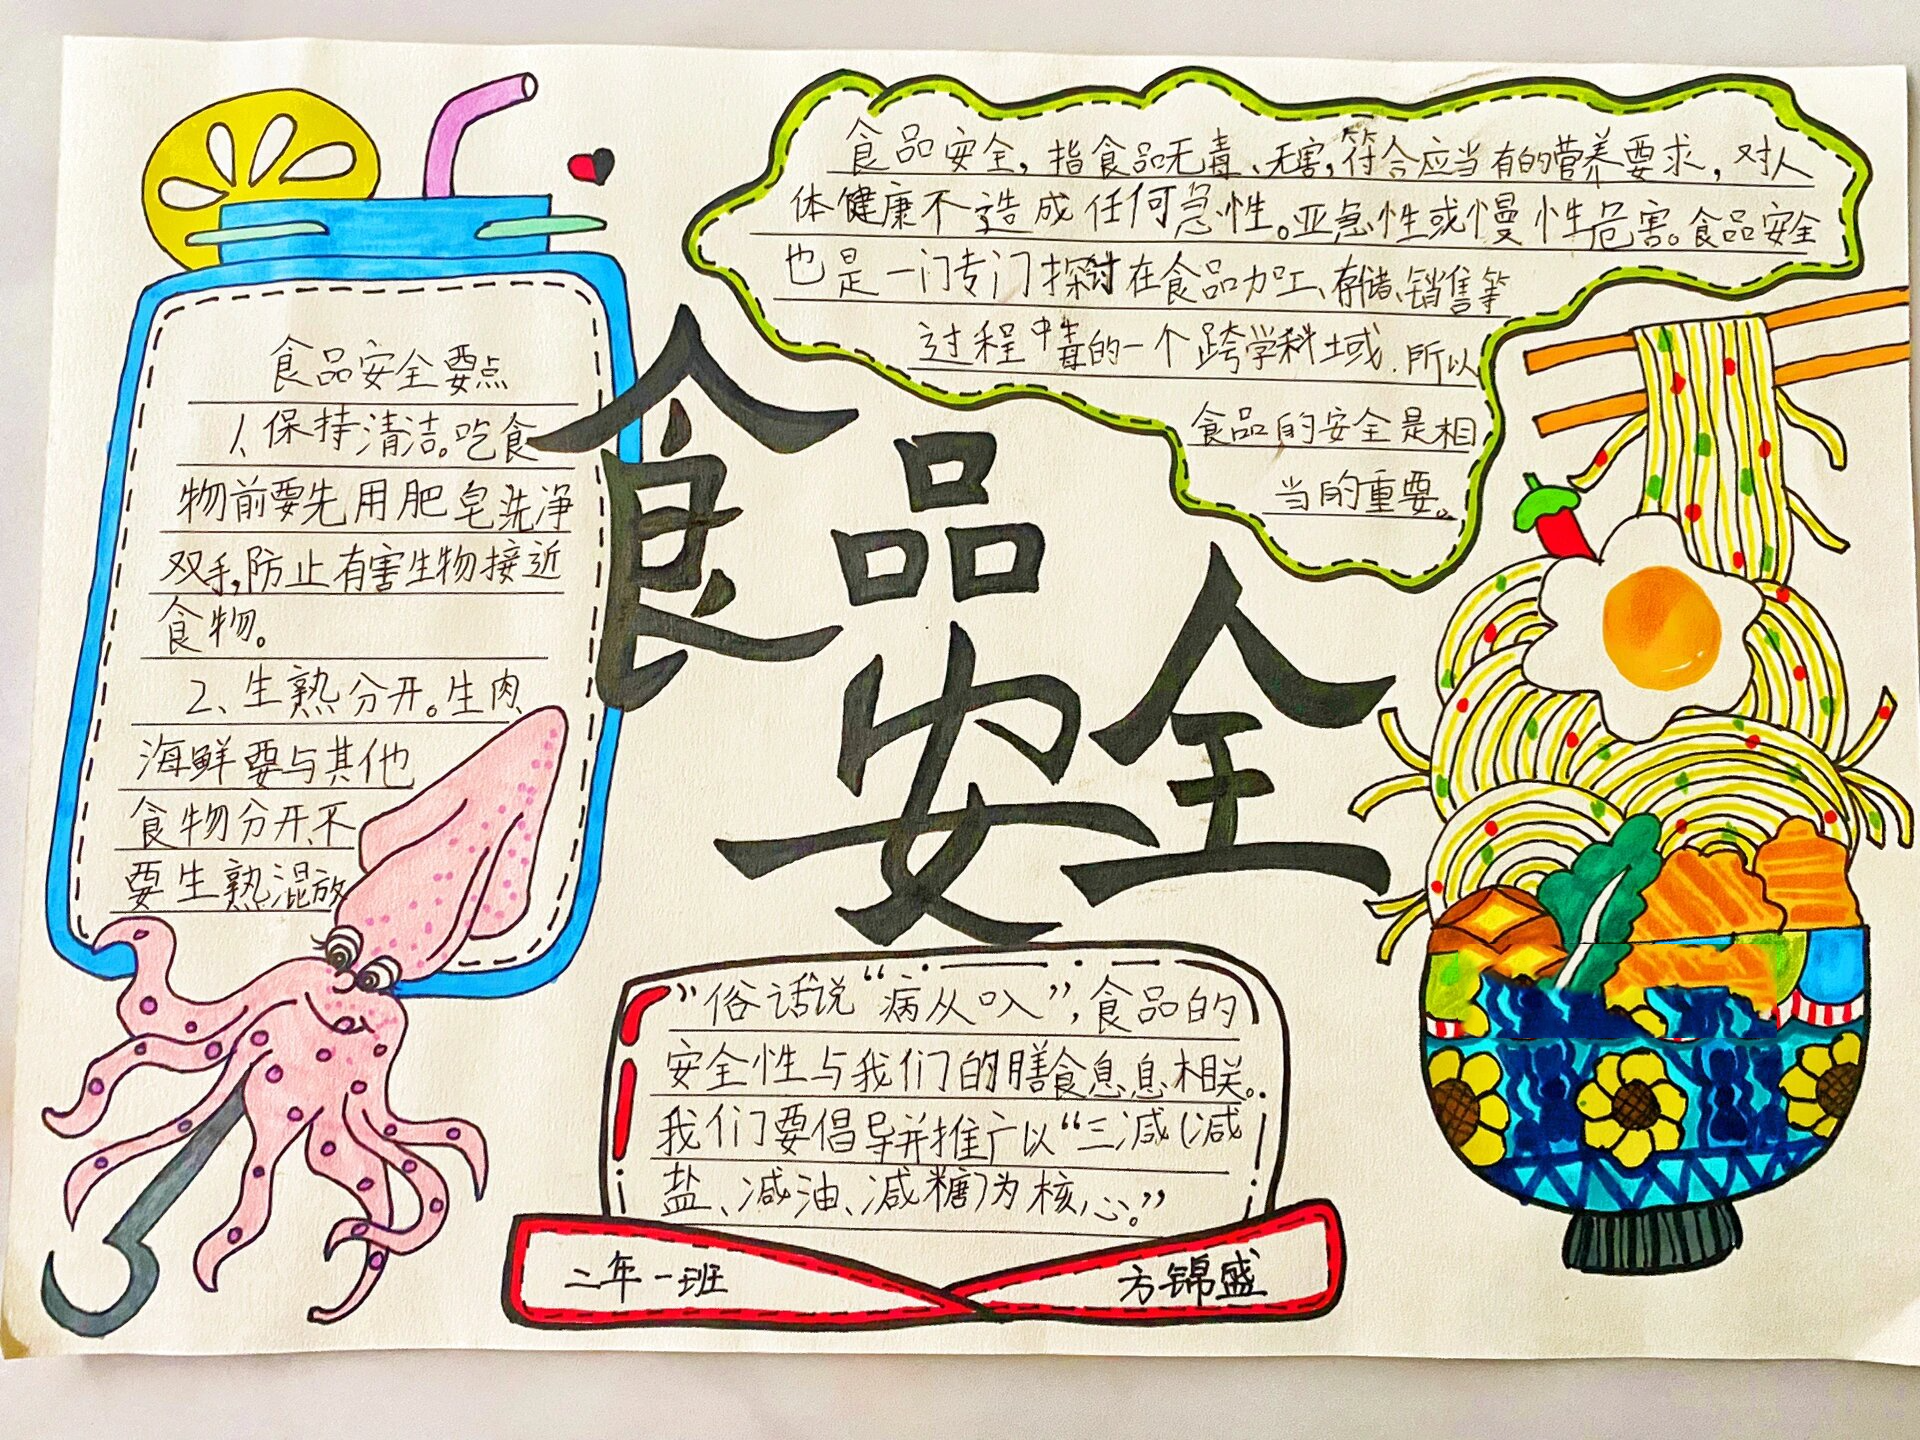 食品安全
食品安全，指食品无毒、无害，符合应当有的营养要求，对人
体健康不造成任何急性。亚急性或慢性危害。食品安全
也是一门专门探讨在食品加工、存储、销售等
过程中毒的一个跨学科域.所以
食品的安全是相
当的重要。
食品安全要点
1、保持清洁。吃食
物前要先用肥皂洗净
双手，防止有害生物接近
食物。
2、生熟分开。生肉、
海鲜要与其他
食物分开.不
要生熟混放
”俗话说“病从口入”，食品的
安全性与我们的膳食息息相关。
我们要倡导并推广以“三减（减
盐、减油、减糖）为核心。”
二年一班
方锦盛